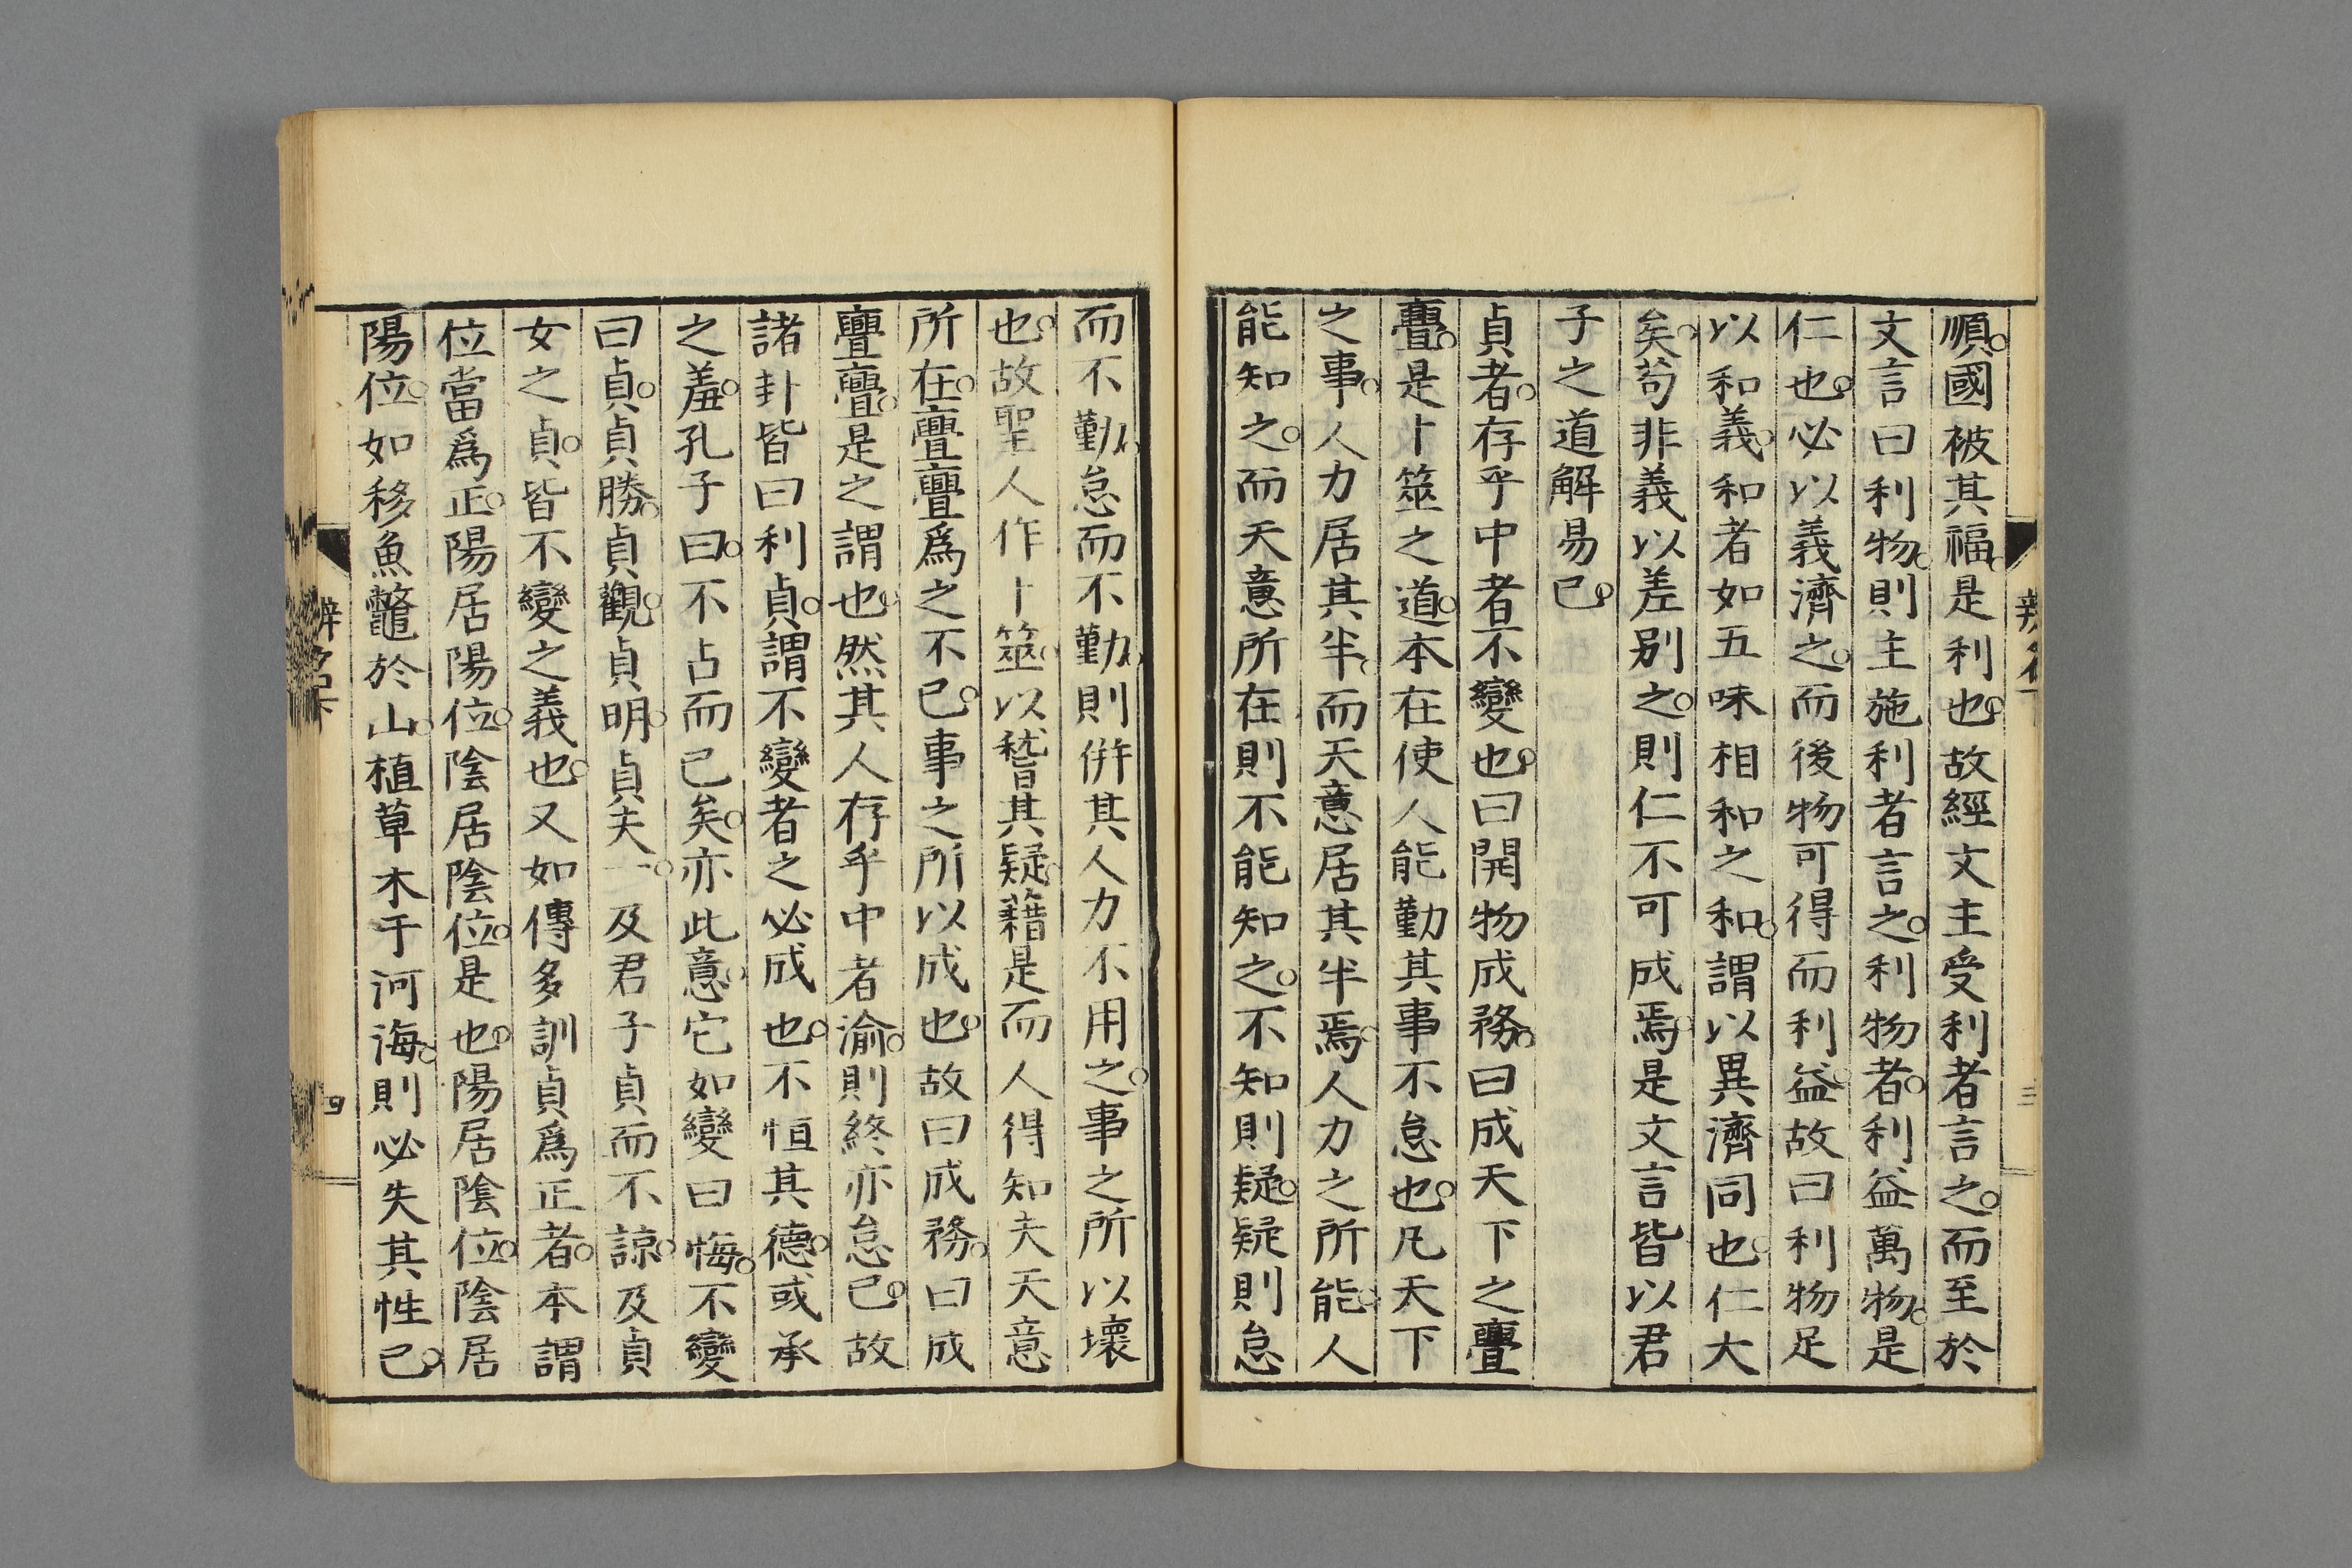 順。國被其福。是利也。故經文主受利者言之。而至於
文言曰利物。則主施利者言之。利物者。利益萬物。是
仁也。必以義濟之。而後物可得而利益。故曰利物足
以和義。和者如五味相和之和。謂以異濟同也。仁大
矣。苟非義以差別之。則仁不可成焉。是文言皆以君
子之道解易已。
貞者。存乎中者不變也。曰開物成務。曰成天下之亹
亹。是卜筮之道。本在使人能勤其事不怠也。凡天下
之事。人力居其半。而天意居其半焉。人力之所能。人
能知之。而天意所在則不能知之。不知則疑。疑則怠
而不勤。怠而不勤。則倂其人力不用之。事之所以壞
也。故聖人作卜筮。以稽其疑。藉是而人得知夫天意
所在。亹亹爲之不已。事之所以成也。故曰成務。曰成
亹亹。是之謂也。然其人存乎中者渝。則終亦怠已。故
諸卦皆曰利貞。謂不變者之必成也。不恒其德。或承
之羞。孔子曰。不占而已矣。亦此意。它如變曰悔。不變
曰貞。貞勝。貞觀。貞明。貞夫一。及君子貞而不諒。及貞
女之貞。皆不變之義也。又如傳多訓貞爲正者。本謂
位當爲正。陽居陽位。陰居陰位。是也。陽居陰位。陰居
陽位。如移魚鼈於山。植草木于河海。則必失其性已。
辨名下
四
辨名下
三